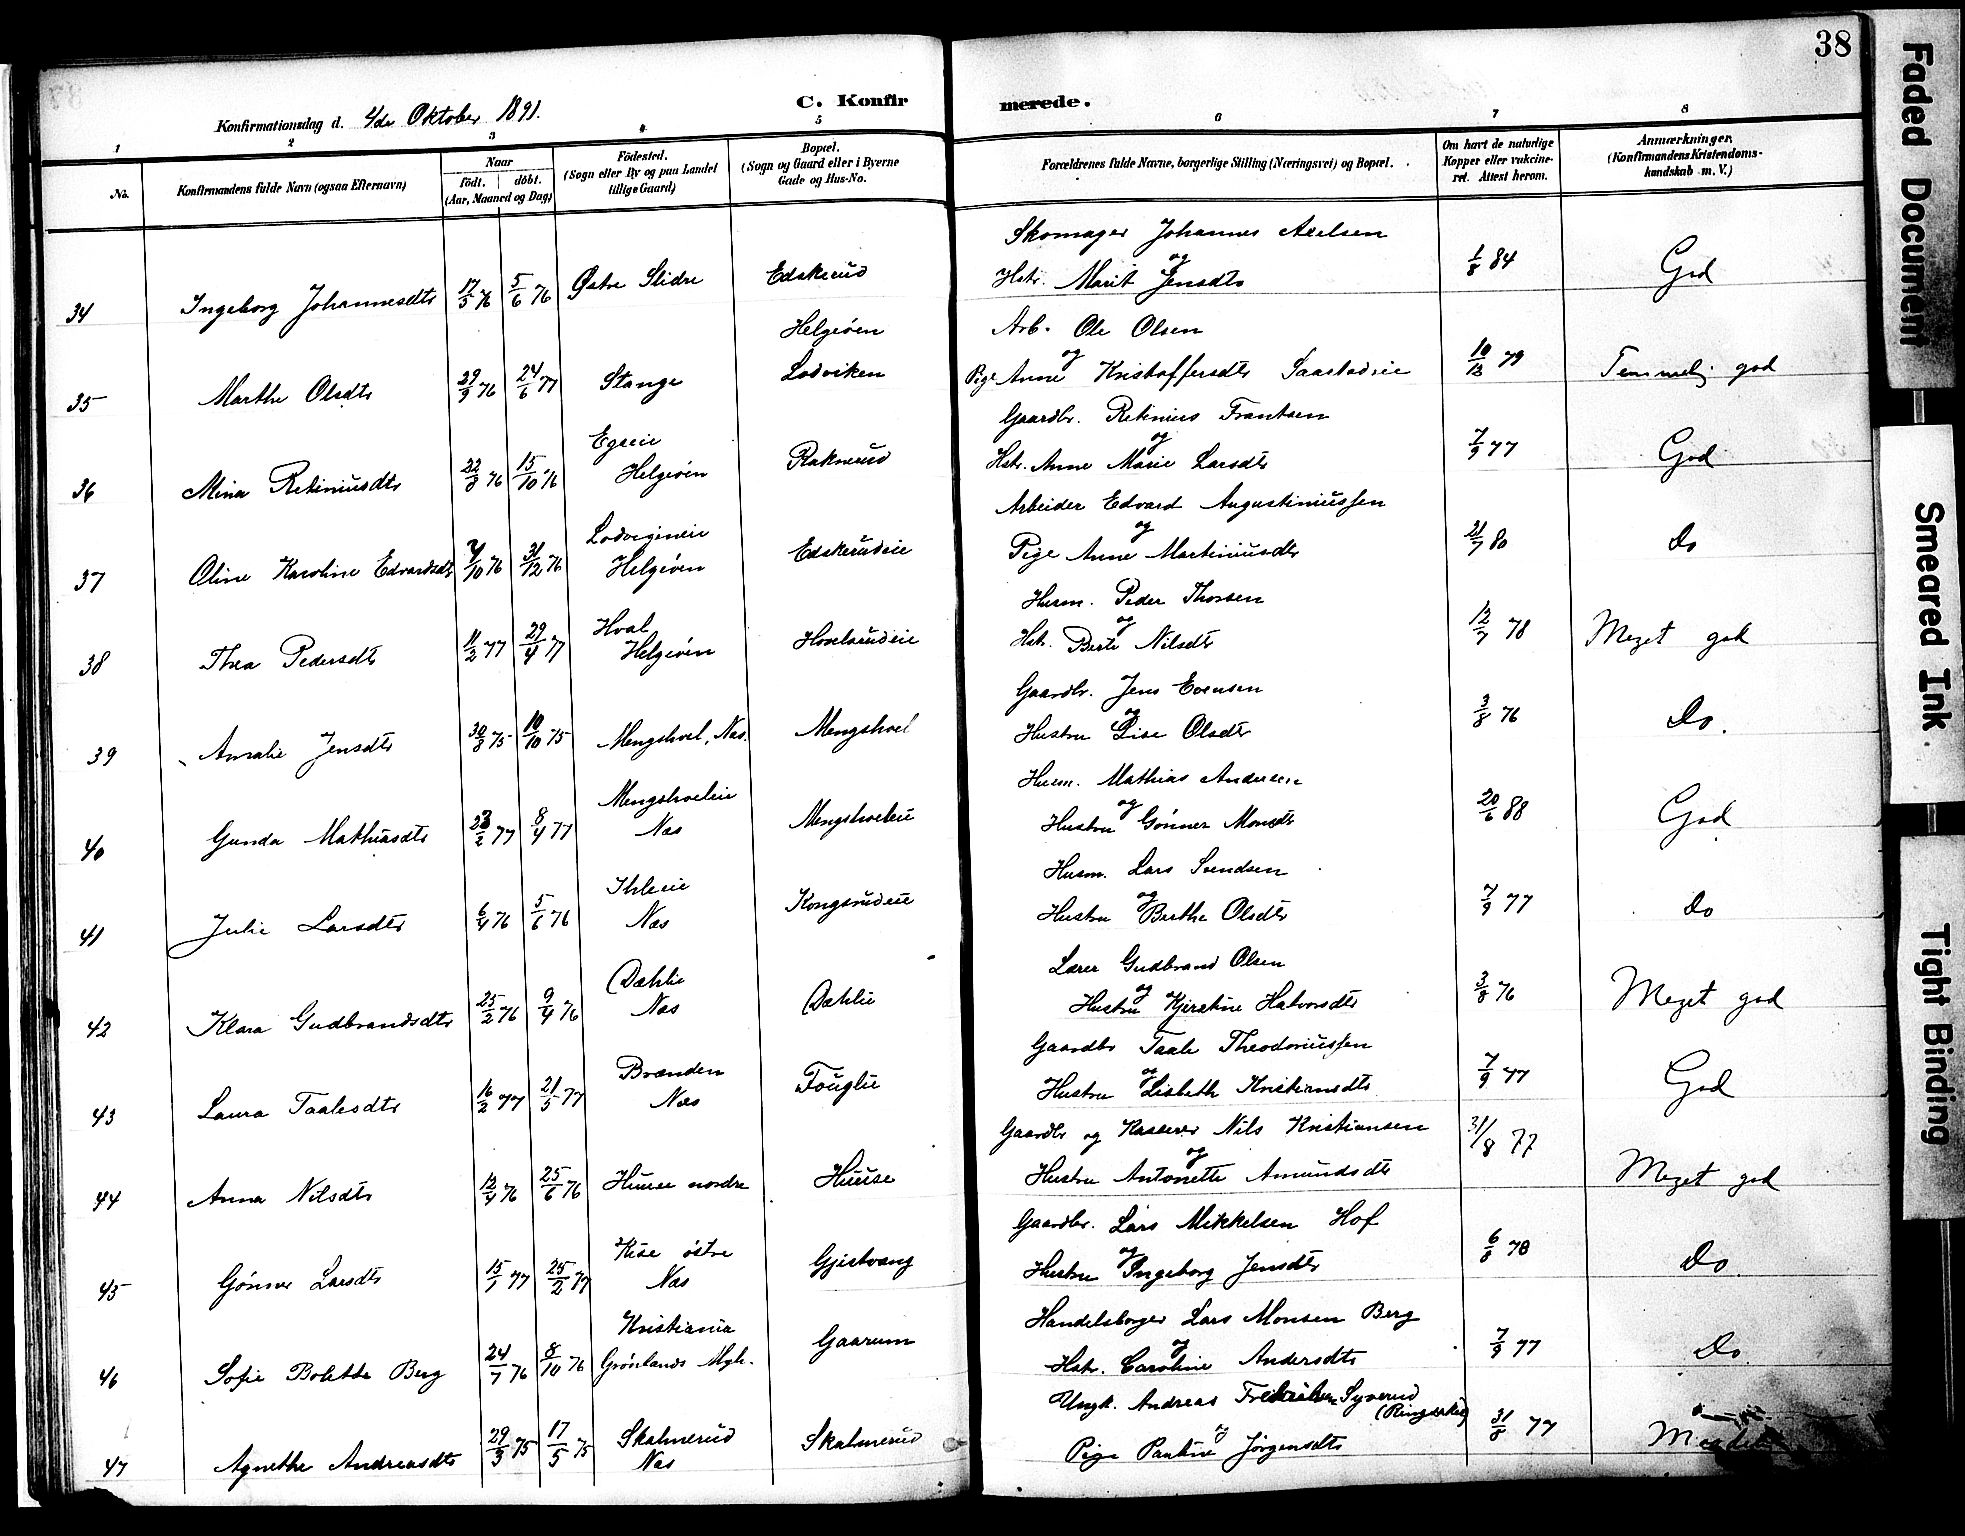 38
Konfirmationsdag d. 4de Oktober 1891.
C. Konfirmerede.
1 2 3 4 5 6 7 8
No.
Konfirmandens fulde Navn (ogsaa Efternavn)
Naar
født. døbt.
(Aar, Maaned og Dag)
Fødested.
(Sogn eller By og paa Landet
tillige Gaard)
Bopæl.
(Sogn og Gaard eller i Byerne
Gade og Hus-No.
Forældrenes fulde Navne, borgerlige Stilling (Næringsvei) og Bopæl.
Om havt de naturlige
Kopper eller vakcine-
ret. Attest herom.
Anmærkninger.
(Konfirmandens Kristendoms-
kundskab m. V.)
Skomager Johannes Axelsen
og
34 Ingeborg Johannesdtr 17/5 76 5/6 76 Østre Slidre Edskerud Hstr. Marit Jensdtr 1/8 84 God
Helgeøen Arb. Ole Olsen
og
35 Marthe Olsdtr 29/9 76 24/6 77 Stange Lodviken Pige Anne Kristoffersdtr Saastadeie 10/12 79 Temmelig god
Gaardbr. Retinius Frantsen
og
36 Mina Retiniusdtr 22/8 76 15/10 76 Egseie
Helgeøen Raknerud Hstr. Anne Marie Larsdtr 7/9 77 God
Arbeider Edvard Augustiniussen
og
37 Oline Karoline Edvardsdtr 31/12 76 Lodvigineie
Helgeøen Edskerudeie Pige Anne Martiniusdtr 21/7 80 Do
Husm. Peder Thorsen
og
38 Thea Pedersdtr 11/2 77 29/4 77 Hval
Helgeøen Hovelsrudeie Hstr. Berte Nilsdtr 12/7 78 Meget god
Gaardbr. Jens Evensen
og
39 Amalie Jensdtr 30/8 75 10/10 75 Mengshoel, Næs. Mengshoel Hustru Lise Olsdtr 3/8 76 Do.
Husm. Mathias Andersen
og
40 Gunda Mathiasdtr 23/2 77 8/4 77 Mengshoeleie
Næs Mengshoeleie Hustru Gønner Monsdtr 20/6 88 God
Husm. Lars Svendsen
og
41 Julie Larsdtr 6/4 76 5/6 76 Ihleeie
Næs Kongsrudeie Hustru Berthe Olsdtr 7/9 77 Do
Lærer Gudbrand Olsen
og
42 Klara Gudbrandsdtr 25/2 76 9/4 76 Dæhlie
Næs Dæhlie Hustru Kjerstine Halvorsdtr 3/8 76 Meget god
Gaardbr Taale Theodoriussen
og
43 Laura Taalesdtr 16/2 77 21/5 77 Brænden
Næs Fouglie Hustru Lisbeth Kristiansdtr 7/9 77 God
Gaardbr og Kasserer Nils Kristiansen
og
44 Anna Nilsdtr 12/4 76 25/6 76 Huuse nordre Huuse Hustru Antonette Amundsdtr 31/8 77 Meget god
Gaardbr. Lars Mikkelsen Hof
og
45 Gønner Larsdtr 15/1 77 25/2 77 Kise østre
Næs Gjestvang Hustru Ingeborg Jensdtr 6/8 78 Do.
Handelsborger Lars Monsen Berg
og
46 Sofie Bolette Berg 24/7 76 8/10 76 Kristiania
Grønlands Mgh. Gaarum Hstr. Caroline Andersdtr 7/9 77 Do
Ungk. Andreas Syverud
(Ringsaker)
og
47 Agnethe Andreasdtr 29/3 75 17/5 75 Skalmerud
Næs Skalmerud Pige Pauline Jørgensdtr 31/8 77
Faded Document
Smeared Ink
Tight Binding